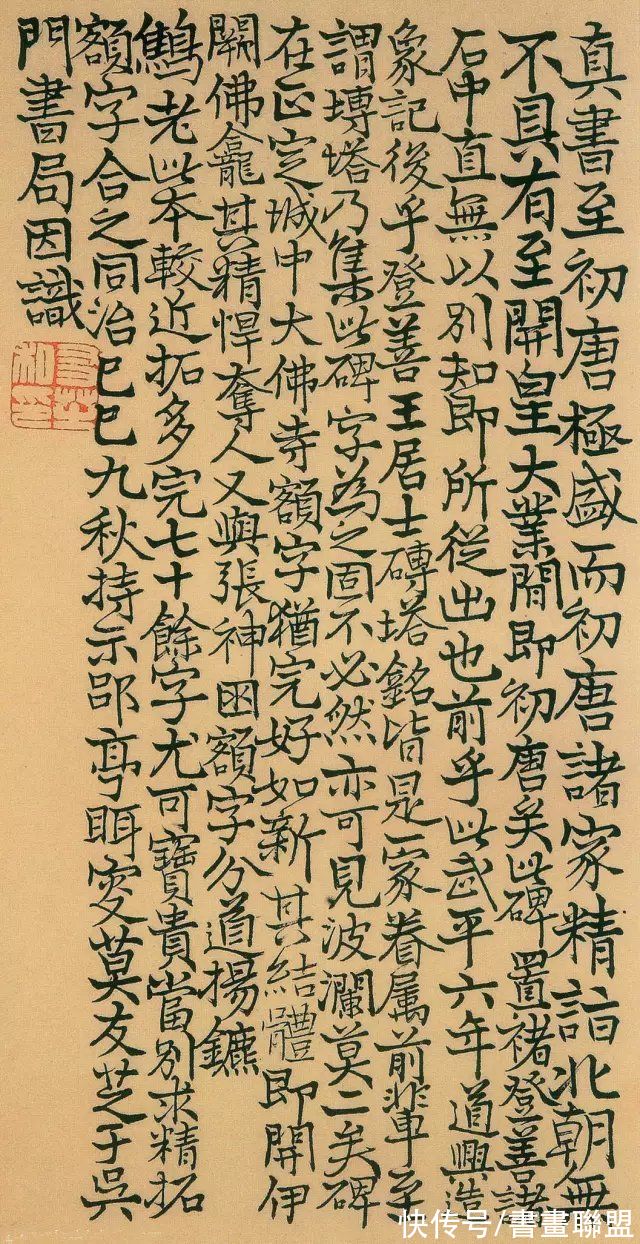 真書至初唐極盛而初唐諸家精詣北朝無
不具有至開皇大業間即初唐矣此碑置褚登善諸
石中直無以別知即所從出也前乎此武平六年道興造
象記後乎登善王居士磚塔銘皆是一家眷屬前輩至
謂塼塔乃集此碑字為之固不必然亦可見波瀾莫二矣碑
在正定城中大佛寺額字猶完好如新其結體即開伊
闕佛龕其精悍奪人又與張神囧額字分道揚鑣
鷦老此本較近拓多完七十餘字尤可寶貴當別求精拓
額字合之同治己巳九秋持示郘亭眲叟莫友芝于吳
門書局因識
快传号/書畫聯盟